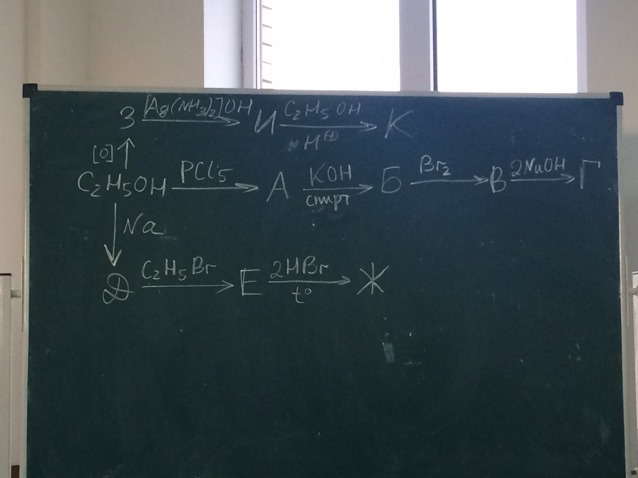 З [Ag(NH3)2]OH → И C2H5OH H⊕ → К
[O] ↑
C2H5OH PCl5 → А KOH спирт → Б Br2 → В 2NaOH → Г
↓ Na
Д C2H5Br → Е 2HBr t° → Ж